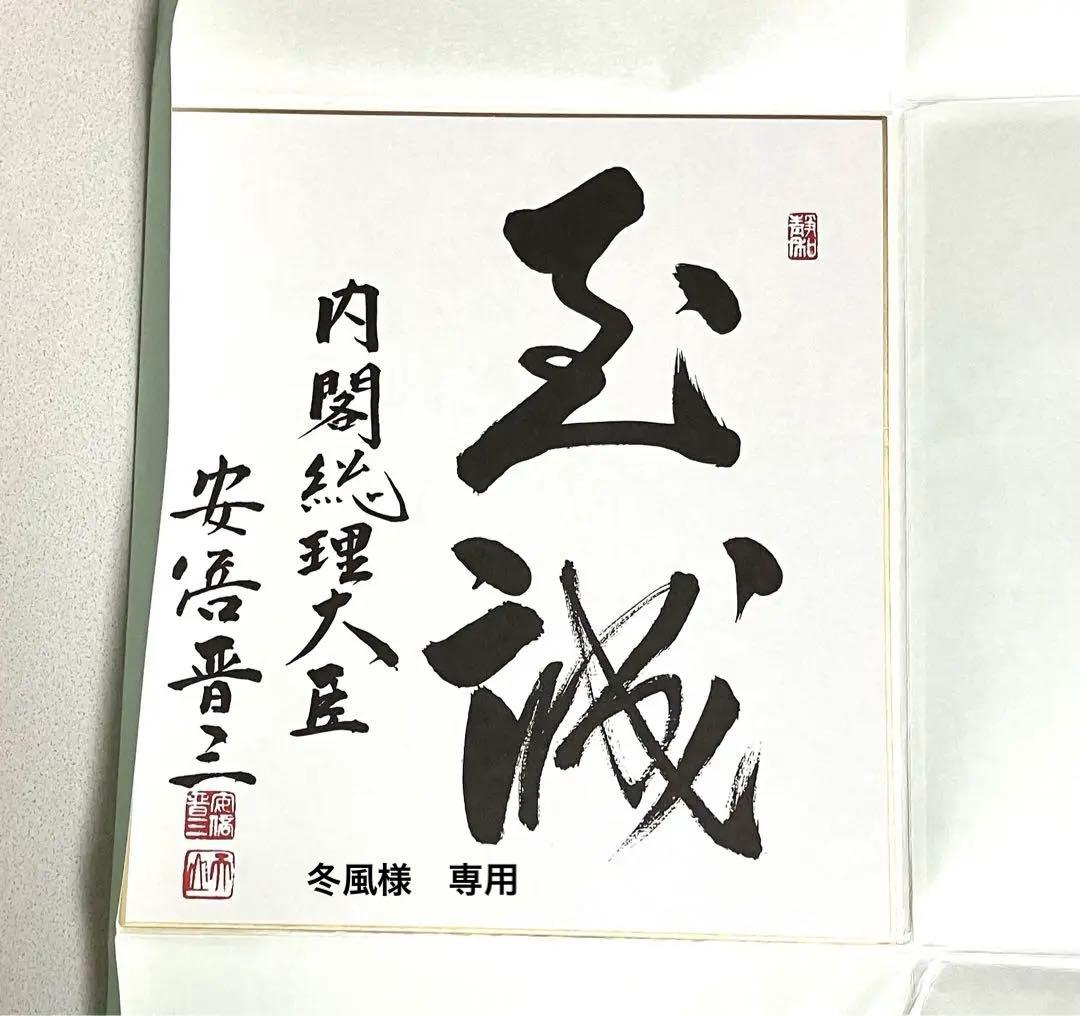 至誠
内閣総理大臣
安倍晋三
安倍
晋三
冬風様　専用